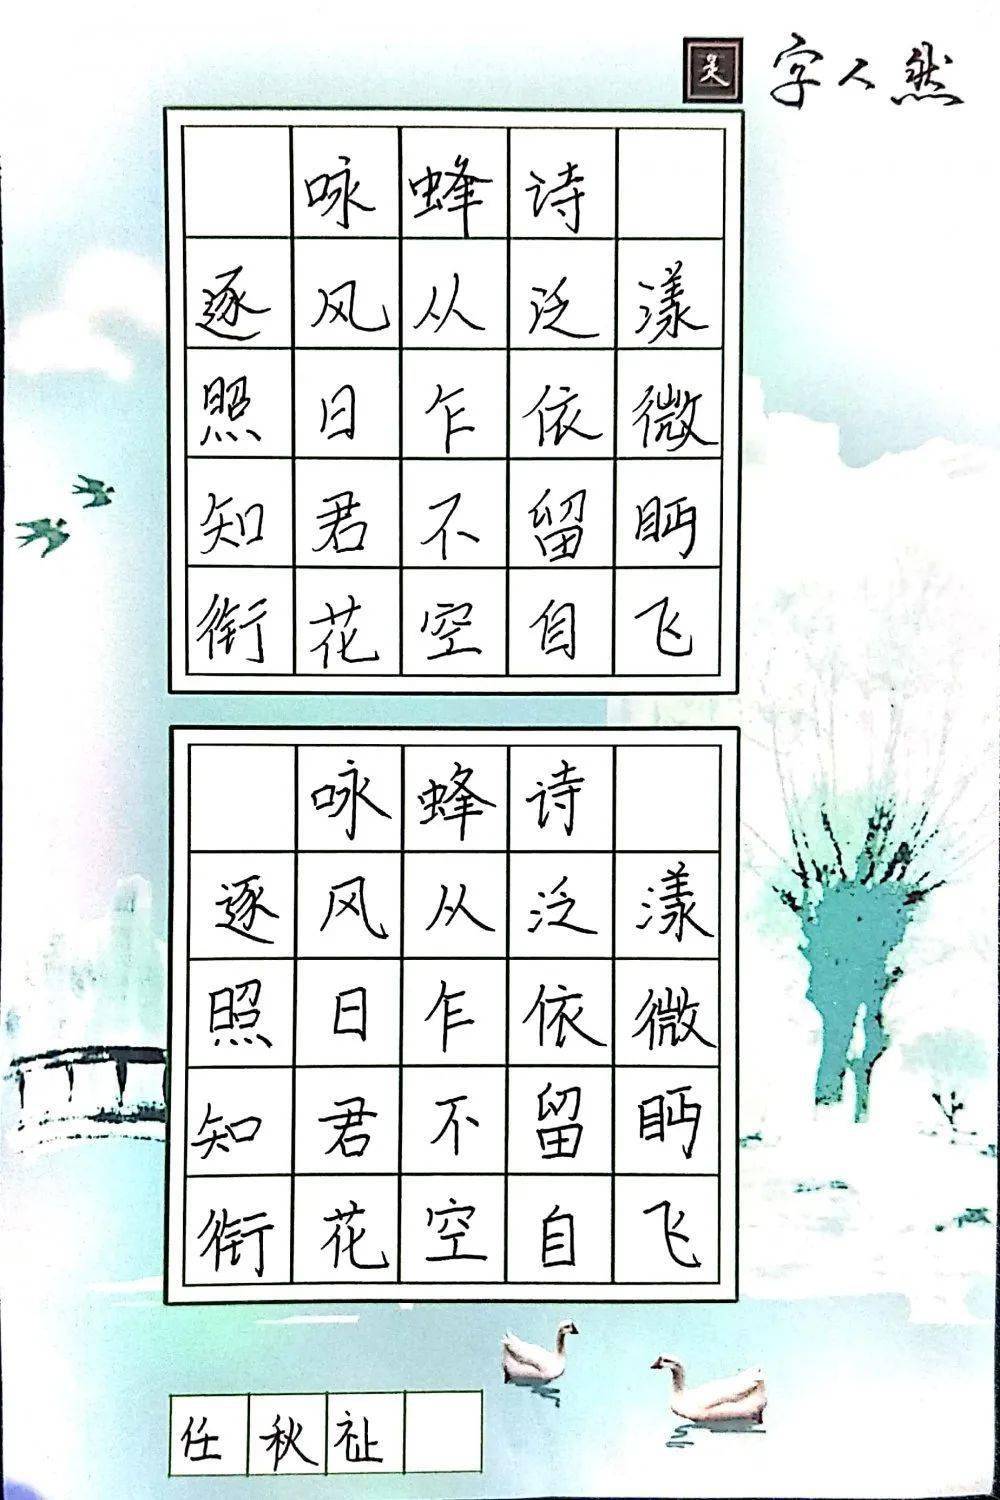 字人然
咏蜂诗
逐风从泛漾
照日乍依微
知君不留眄
衔花空自飞
咏蜂诗
逐风从泛漾
照日乍依微
知君不留眄
衔花空自飞
任秋祉